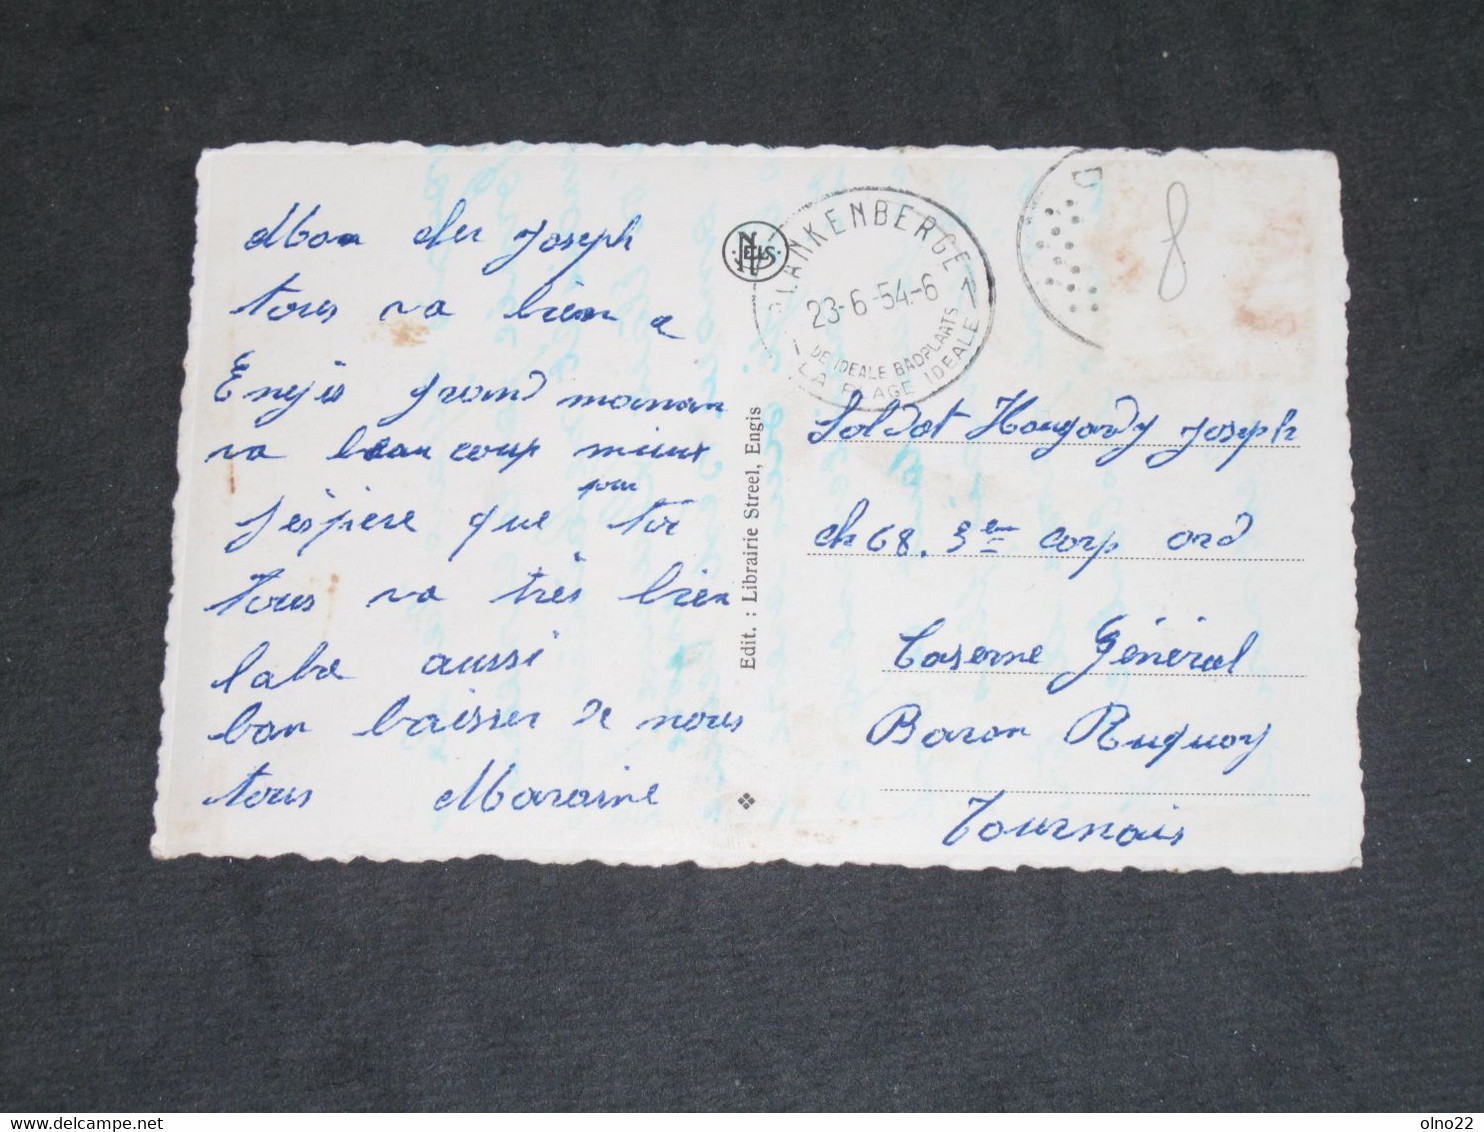 Mon cher Joseph
tous va bien a
Engis grand maman
va beaucoup mieux
j'éspère que pour toi
tous va très bien
l'abé aussi
bon baisser de nous
tous Maraine
NELS
Edit. : Librairie Streel, Engis
BLANKENBERGE 1
23-6-54.-6
DE IDEALE BADPLAATS
LA PLAGE IDEALE
8
Soldat Hougardy Joseph
ch 68. 3em corp ord
Caserne Général
Baron Ruquoy
Tournais
olno22